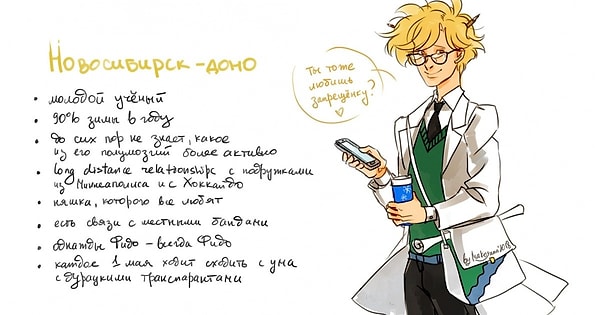 Новосибирск-доно
• молодой учёный
• 90% зимы в году
• до сих пор не знает, какое
из его полумозгий более активно
• long distance relationships с подружками
из Миннеаполиса и с Хоккайдо
• няшка, которого все любят
• есть связи с местными бандами
• однажды Фидо – всегда Фидо
• каждое 1 мая ходит сходить с ума
с дурацкими транспарантами
Ты тоже
любишь
запрещёнку?